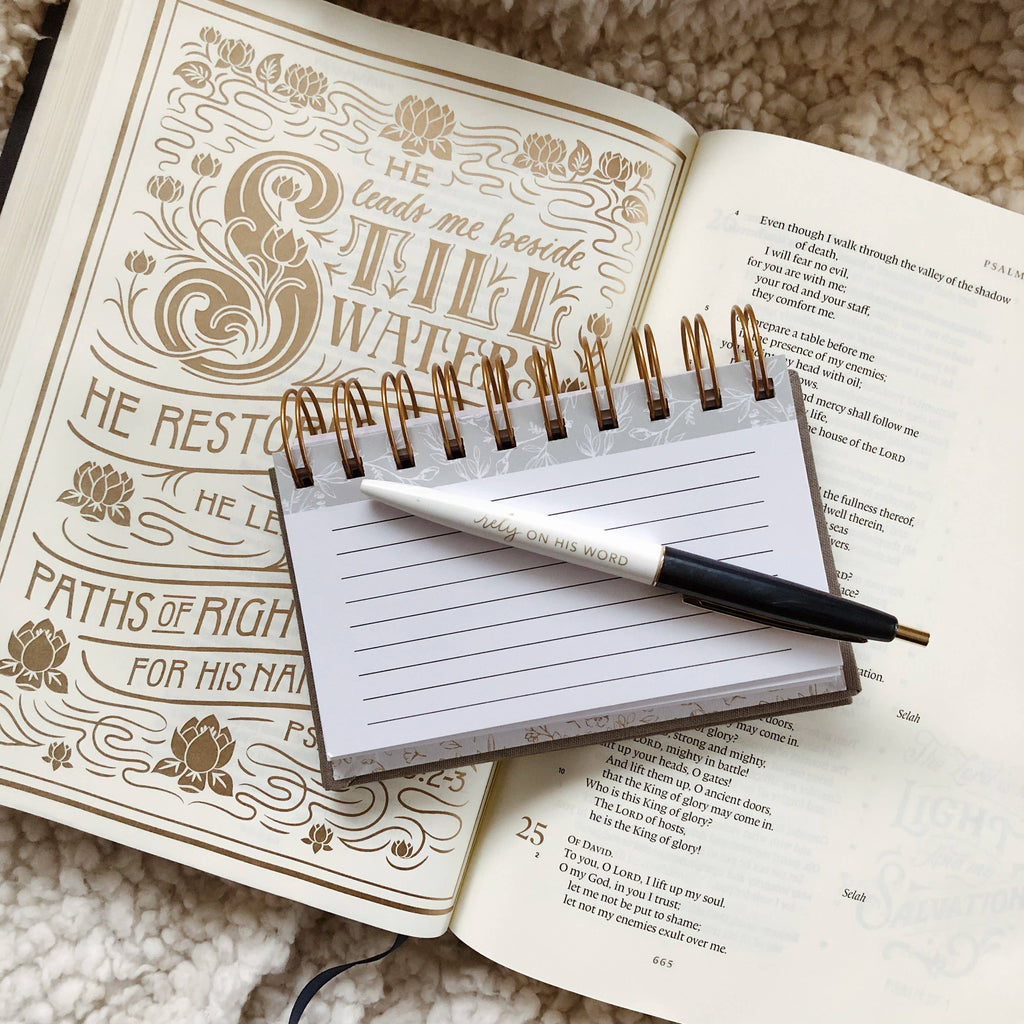 HE
leads me beside
STILL
WATERS
HE RESTO
HE LE
PATHS OF RIGH
FOR HIS NA
PS
3:2-3
rely ON HIS WORD
PSALM
4 Even though I walk through the valley of the shadow
of death,
I will fear no evil,
for you are with me;
your rod and your staff,
they comfort me.
5
prepare a table before me
the presence of my enemies;
my head with oil;
ows.
and mercy shall follow me
life,
he house of the LORD
the fullness thereof,
dwell therein,
seas
vers.
RD?
ace?
ation.
Selah
doors,
may come in.
of glory?
LORD, strong and mighty,
mighty in battle!
ift up your heads, O gates!
And lift them up, O ancient doors,
that the King of glory may come in.
10 Who is this King of glory?
The LORD of hosts,
he is the King of glory!
Selah
25 OF DAVID.
To you, O LORD, I lift up my soul.
2 O my God, in you I trust;
let me not be put to shame;
let not my enemies exult over me.
665